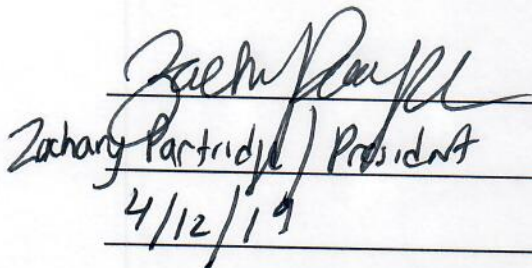 Zachary Partridge / President
4/12/19